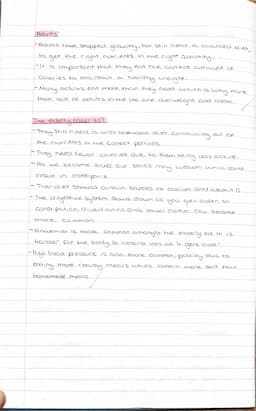 Adults
- Adults have stopped growing, but still need a balanced diet,
to get the right nutrients in the right quantity.
- It is important that they eat the correct amount of
calories to maintain a healthy weight.
- Many adults eat more than they need which is why more
than half of adults in the UK are overweight and obese.
The elderly (over 65)
- They still need a well balanced diet containing all of
the nutrients in the correct portions.
- They need fewer calories due to them being less active.
- As we become older our bones may weaken which could
result in osteoporosis.
- Their diet should contain sources of calcium and vitamin D.
- The digestive system slows down as you get older, so
constipation, diverticulitis and bowel cancer can become
more common.
- Anaemia is more common amongst the elderly as it is
harder for the body to absorb iron as it gets older.
- High blood pressure is also more common, possibly due to
eating more ready meals which contain more salt than
homemade meals.